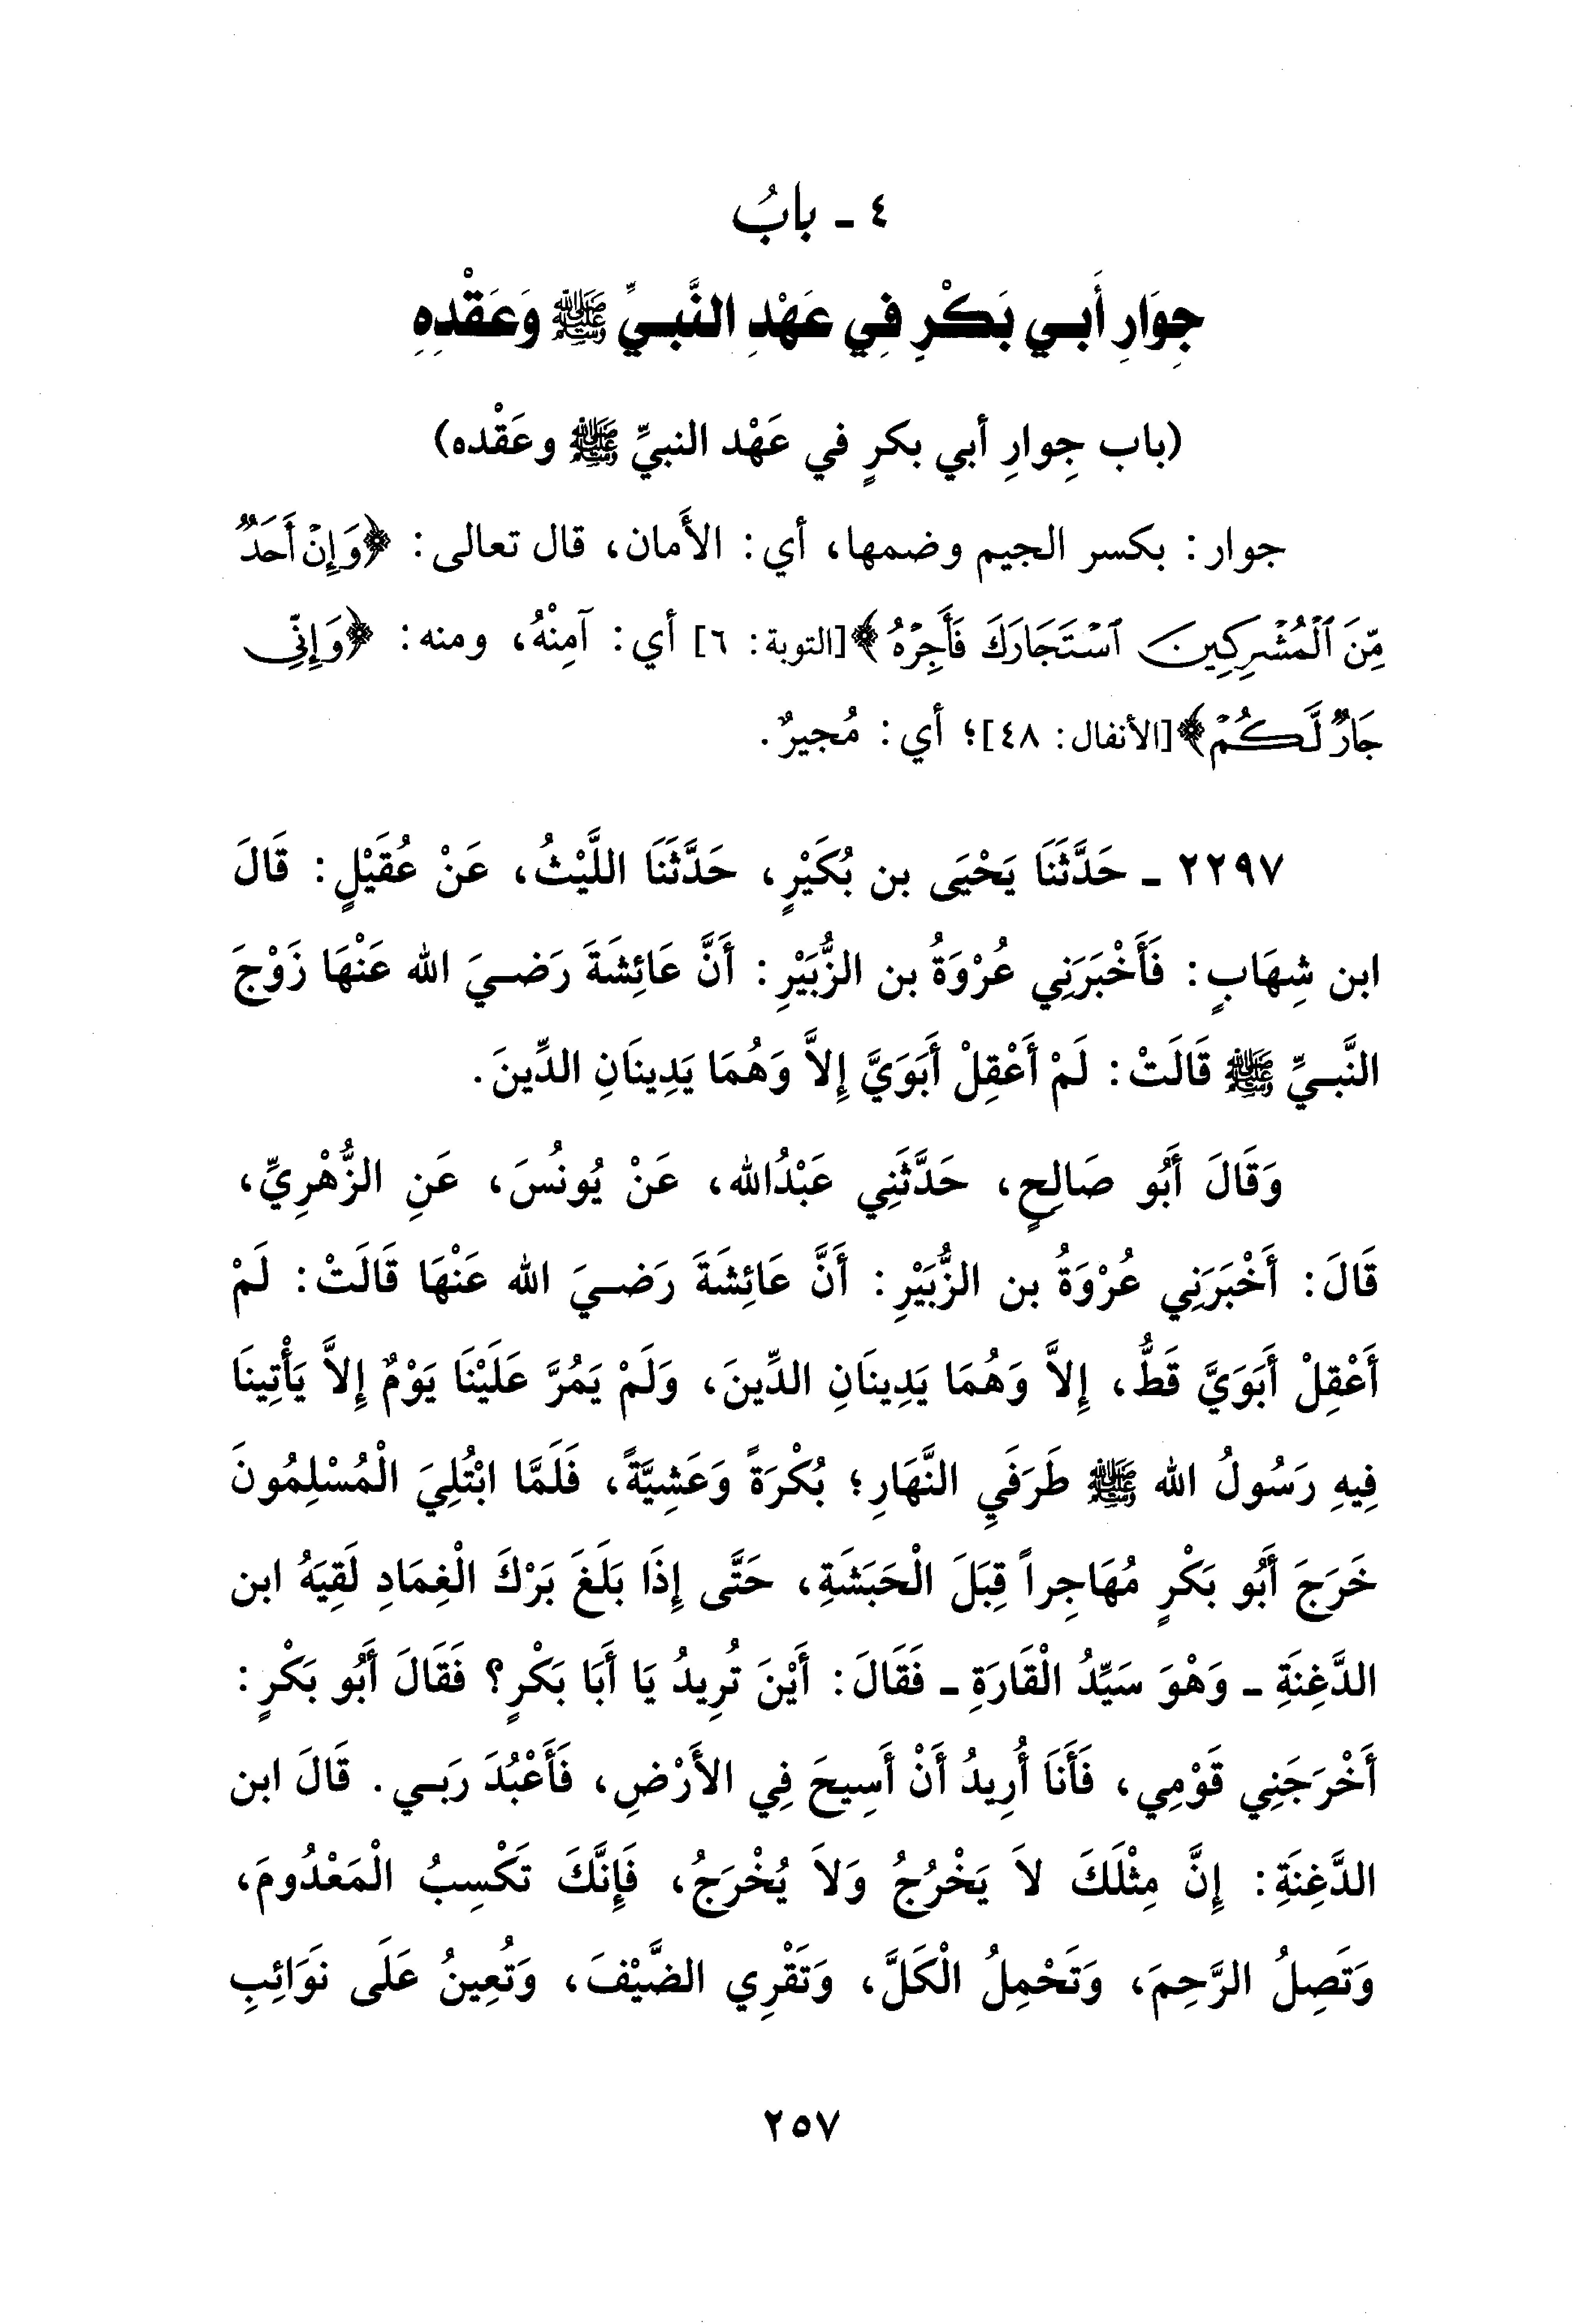 ٤ ـ بابُ
جِوَارِ أَبي بَكْرٍ فِي عَهْدِ النَّبيِّ ﷺ وَعَقْدِهِ
(باب جِوارِ أبي بكرٍ في عَهْد النبيِّ ﷺ وعَقْده)
جوار: بكسر الجيم وضمها، أي: الأَمان، قال تعالى: ﴿وَإِنْ أَحَدٌ
مِّنَ ٱلْمُشْرِكِينَ ٱسْتَجَارَكَ فَأَجِرْهُ﴾[التوبة: ٦] أي: آمِنْهُ، ومنه: ﴿وَإِنِّي
جَارٌ لَّكُمْ﴾[الأنفال: ٤٨]؛ أي: مُجيرٌ.
٢٢٩٧ ـ حَدَّثَنَا يَحْيَى بن بُكَيْرٍ، حَدَّثَنَا اللَّيْثُ، عَنْ عُقَيْلٍ: قَالَ
ابن شِهَابٍ: فَأَخْبَرَنِي عُرْوَةُ بن الزُّبَيْرِ: أَنَّ عَائِشَةَ رَضيَ الله عَنْهَا زَوْجَ
النَّبيِّ ﷺ قَالَتْ: لَمْ أَعْقِلْ أَبَوَيَّ إِلاَّ وَهُمَا يَدِينَانِ الدِّينَ.
وَقَالَ أَبُو صَالِحٍ، حَدَّثَنِي عَبْدُالله، عَنْ يُونُسَ، عَنِ الزُّهْرِيِّ،
قَالَ: أَخْبَرَنِي عُرْوَةُ بن الزُّبَيْرِ: أَنَّ عَائِشَةَ رَضيَ الله عَنْهَا قَالَتْ: لَمْ
أَعْقِلْ أَبَوَيَّ قَطُّ، إِلاَّ وَهُمَا يَدِينَانِ الدِّينَ، وَلَمْ يَمُرَّ عَلَيْنَا يَوْمٌ إِلاَّ يَأْتِينَا
فِيهِ رَسُولُ الله ﷺ طَرَفَيِ النَّهَارِ؛ بُكْرَةً وَعَشِيَّةً، فَلَمَّا ابْتُلِيَ الْمُسْلِمُونَ
خَرَجَ أَبُو بَكْرٍ مُهَاجِراً قِبَلَ الْحَبَشَةِ، حَتَّى إِذَا بَلَغَ بَرْكَ الْغِمَادِ لَقِيَهُ ابن
الدَّغِنَةِ ـ وَهْوَ سَيِّدُ الْقَارَةِ ـ فَقَالَ: أَيْنَ تُرِيدُ يَا أَبَا بَكْرٍ؟ فَقَالَ أَبُو بَكْرٍ:
أَخْرَجَنِي قَوْمِي، فَأَنَا أُرِيدُ أَنْ أَسِيحَ فِي الأَرْضِ، فَأَعْبُدَ رَبي. قَالَ ابن
الدَّغِنَةِ: إِنَّ مِثْلَكَ لاَ يَخْرُجُ وَلاَ يُخْرَجُ، فَإِنَّكَ تَكْسِبُ الْمَعْدُومَ،
وَتَصِلُ الرَّحِمَ، وَتَحْمِلُ الْكَلَّ، وَتَقْرِي الضَّيْفَ، وَتُعِينُ عَلَى نَوَائِبِ
٢٥٧